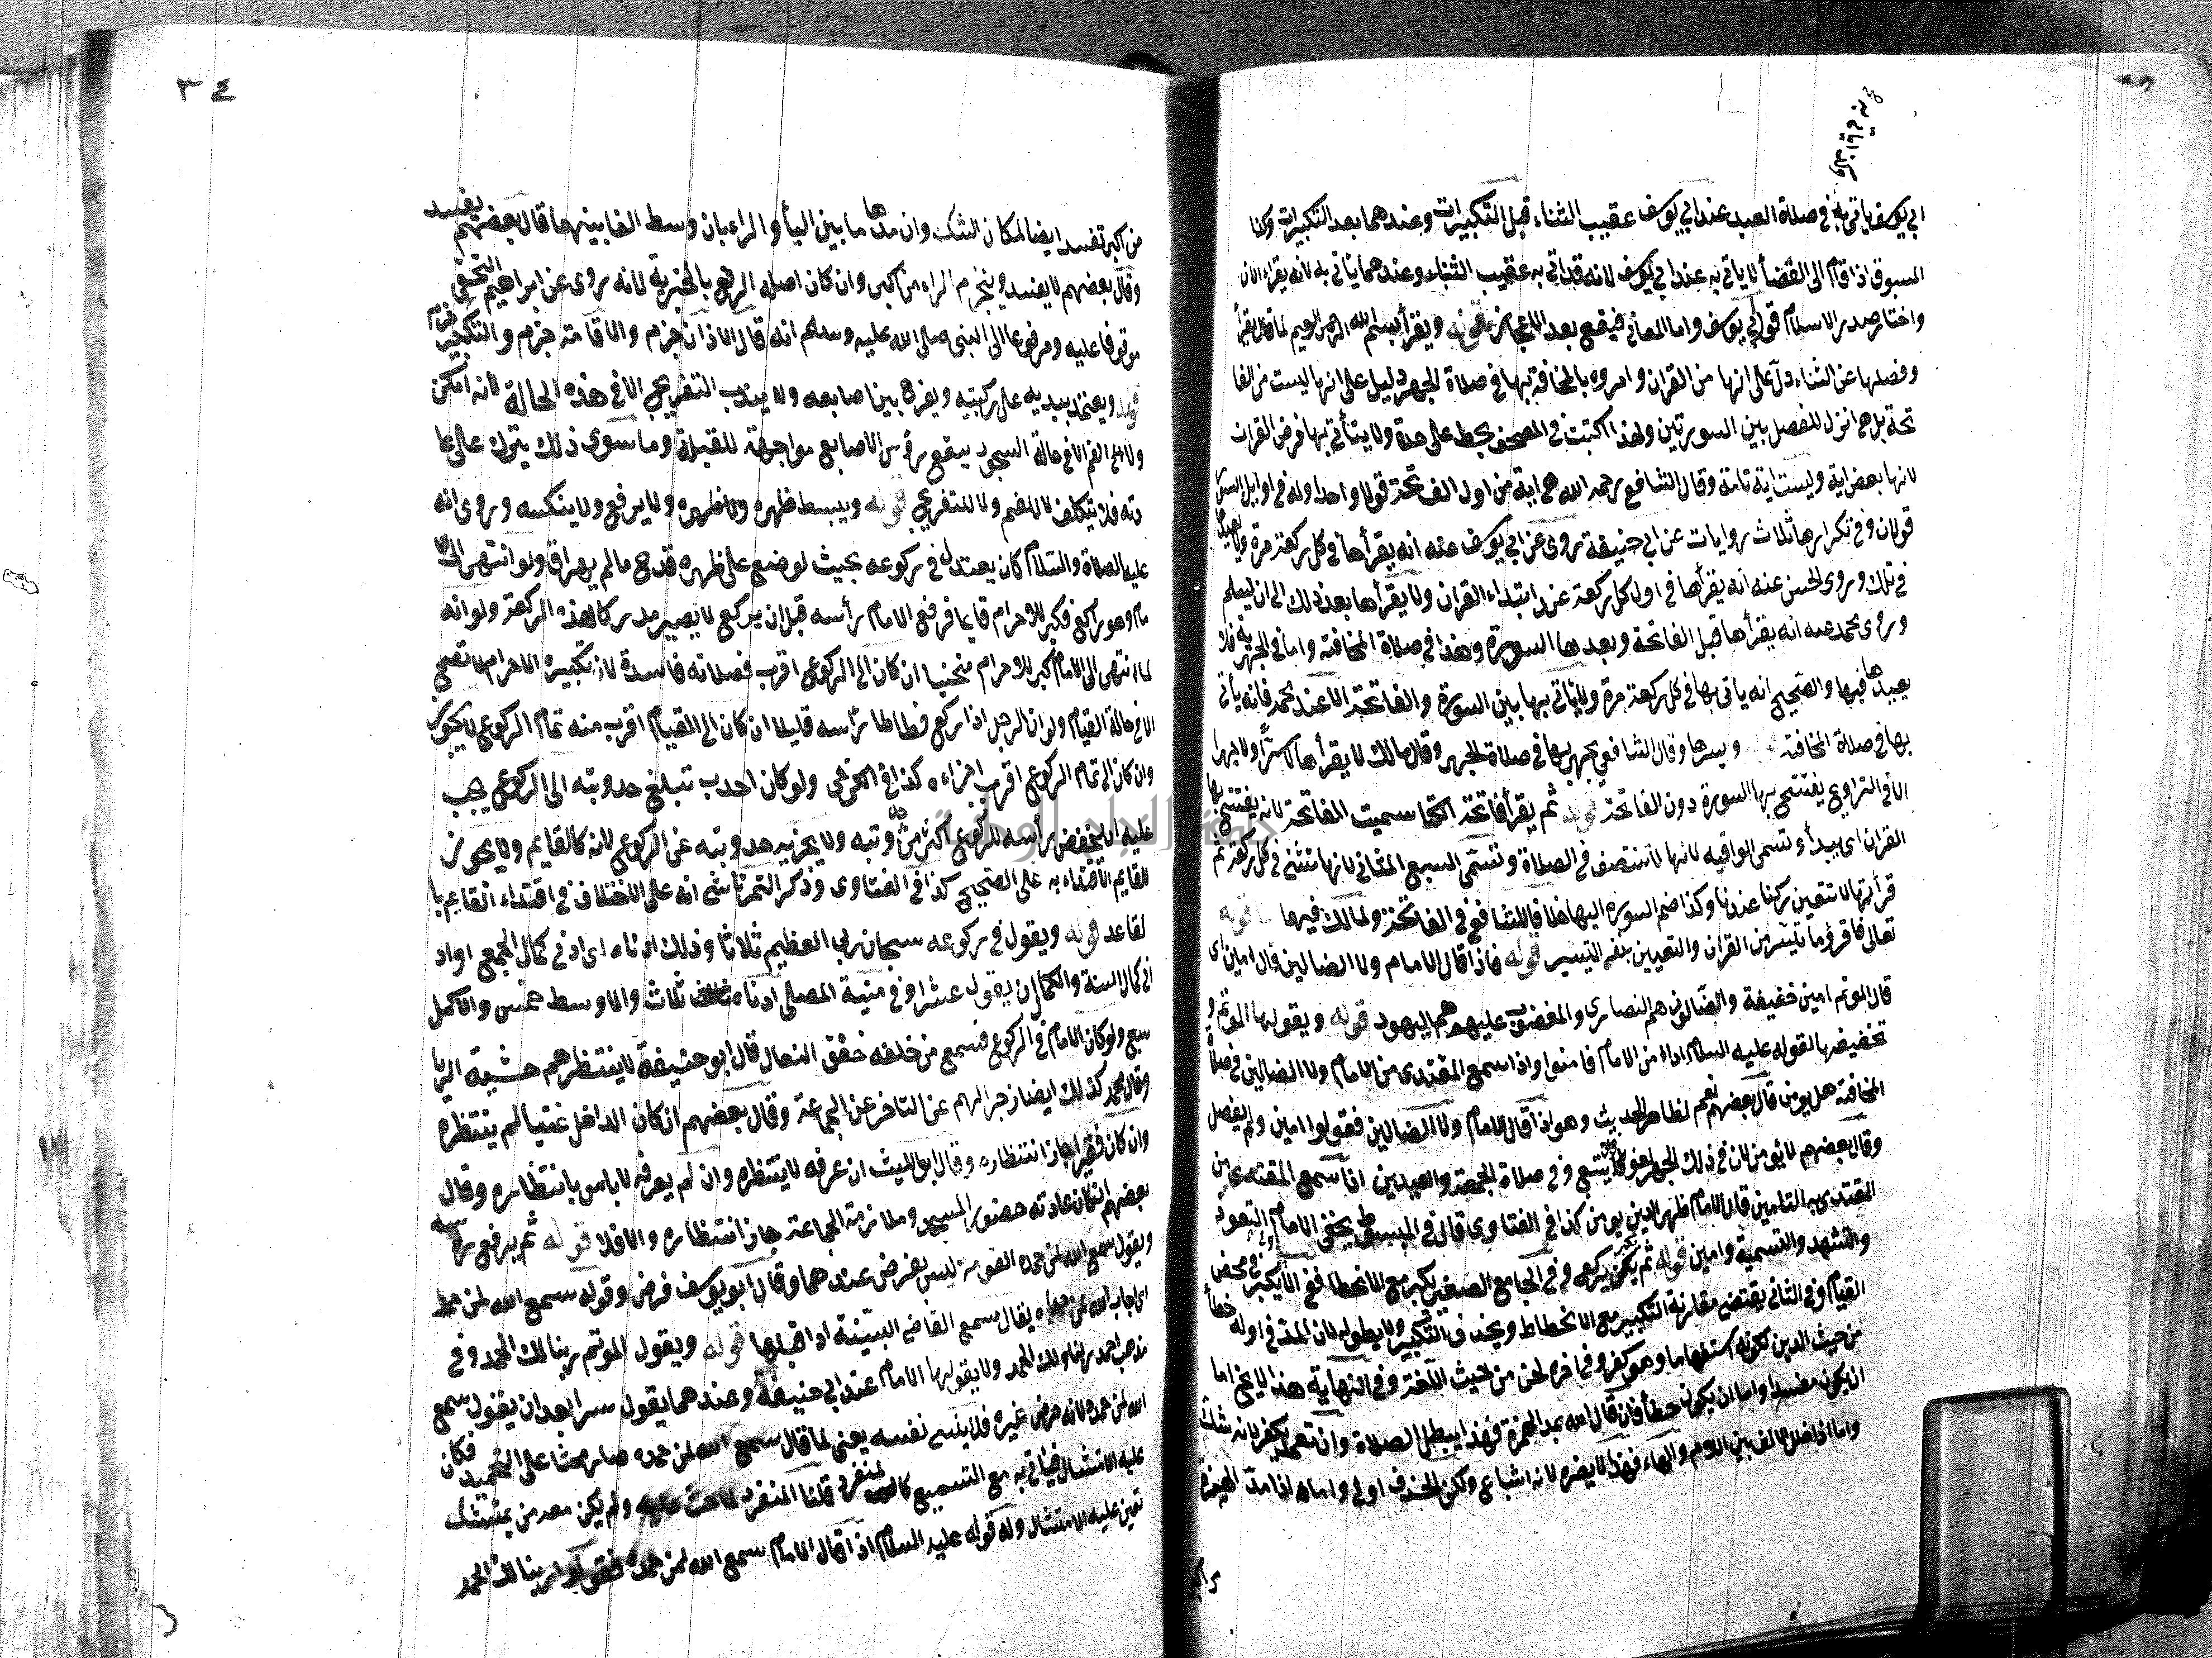 ابي يوسف ياتي به في صلاة العيد عند ابي يوسف عقيب الثناء قبل التكبيرات وعندهما بعد التكبيرات وكذا
المسبوق اذا قام الى القضأ لا ياتي به عند ابي يوسف لانه قد اتي به عقيب الثناء وعندهما ياتي به لانه يقراء الان
واختار صدر الاسلام قول ابي يوسف واما المعاني فيقع بعد الاعجاز قوله ويقرأ بسم الله الرحمن الرحيم لما قال يقرأ
وفصلها عن الثناء دل على انها من القران وامروه بالمخافة بها في صلاة الجهر دليل على انها ليست من الفا
تحة بل هي انزل للفصل بين السورتين ولهذا كتبت في المصحف بخط على حدة ولا يتأتي بها فرض القران
لانها بعض اية وليست اية تامة وقال الشافعي رحمه الله هي اية من اول الفاتحة قولا واحدا وله في اوايل السور
قولان وفي تكرارها ثلاث روايات عن ابي حنيفة روى عن ابي يوسف عنه انه يقرأها في كل ركعة مرة ولا يعيدها
في تلك وروى الحسن عنه انه يقرأها في اول كل ركعة عند ابتداء القران ولا يقرأها بعد ذلك الى ان يسلم
وروى محمد عنه انه يقرأها قبل الفاتحة وبعدها السورة وهذا في صلاة المخافتة واما في الجهرية فلا
يعيدها فيها والصحيح انه ياتي بها في كل ركعة مرة ولا ياتي بها بين السورة والفاتحة الا عند محمد فانه يأتي
بها في صلاة المخافتة ويسرها وقال الشافعي يجهر بها في صلاة الجهر وقال مالك لا يقرأها لا سرًا ولا جهرا
الا في التراويح يفتتح بها السورة دون الفاتحة قوله ثم يقرأ فاتحة الكتا سميت الفاتحة لانه يفتتح بها
القران اى يبدأ وتسمى الواقية لانها لا تنتصف في الصلاة وتسمى السبع المثاني لانها تثنى في كل ركعة ثم
قرأتها لا تتعين ركنا عندنا وكذا ضم السورة اليها خلافا للشافعي في الفاتحة ولمالك فيهما قوله
تعالى فاقرؤا ما تيسر من القران والتعيين ينفي التيسير قوله فاذا قال الامام ولا الضالين قال امين اى
قال الموتم امين خفيفة والضالون هم النصارى والمغضوب عليهم هم اليهود قوله ويقولها الموتم و
تخفيفها لقوله عليه السلام اذا امن الامام فامنوا واذا سمع المقتدى من الامام ولا الضالين في صلاة
المخافتة هل يومن قال بعضهم نعم لظاهر الحديث وهو اذا قال الامام ولا الضالين فقولوا امين ولم يفصل
وقال بعضهم لا يؤمن لان في ذلك الجهر لغو فلا يتبع وفي صلاة الجمعة والعيدين اذا سمع المقتدى من
المقتدى به التامين قال الامام ظهير الدين يومن كذا في الفتاوى قال في المبسوط يخفي الامام التعوذ
والتشهد والتسمية وامين قوله ثم يكبر ويركع وفي الجامع الصغير يكبر مع الانحطاط ففي الاول يكبر في محض
القيام وفي الثاني يقتضي مقارنة التكبير مع الانحطاط ويحذف التكبير ولا يطوله لان المد في اوله خطأ
من حيث الدين لكونه استفهاما وهو كفر وفي اخره لحن من حيث اللغة وفي النهاية هذا لا يخ اما
ان يكون مفسدا واما ان يكون خطأ فان قال الله بمد الهمزة فهذا يبطل الصلاة وان تعمد يكفر لانه شاك
واما اذا خلل الالف بين اللام والهاء فهذا لا يضره لانه اشباع ولكن الحذف اولى واما اذا مد الهمزة
٣٤
من اكبر تفسد ايضا لمكان الشك وان مدها ما بين البأ والراء بان وسط الفا بينهما قال بعضهم يفسد
وقال بعضهم لا يفسد ويجزم الراء من اكبر وان كان اصله الرفع بالخبرية لانه روى عن ابراهيم النخعي
موقوفا عليه ومرفوعا الى النبي صلى الله عليه وسلم انه قال الاذان جزم والاقامة جزم والتكبير جزم
قوله ويعتمد بيديه على ركبتيه ويفرج بين اصابعه ولا يندب التفريج الا في هذه الحالة لانه امكن
ولا الى الضم الا في حالة السجود ليقع رؤس الاصابع مواجهة للقبلة وما سوى ذلك يترك على عا
دته فلا يتكلف لا للضم ولا للتفريج قوله ويبسط ظهره ولا يرفع ولا ينكسه وروى انه
عليه الصلاة والسلام كان يعتدل في ركوعه بحيث لو ضع على ظهره قدح ما لم يهراق ولو انتهى الى الا
مام وهو راكع فكبر للاحرام قايما فرفع الامام رأسه قبل ان يركع لا يصير مدركا لهذه الركعة ولو انه
لما انتهى الى الامام كبر للاحرام منحنيا ان كان الى الركوع اقرب فصلاته فاسدة لان تكبيرة الاحرام لا تصح
الا في حالة القيام ولو ان الرجل اذا ركع فطاطا رأسه قليلا ان كان الى القيام اقرب منه تمام الركوع لا يجوز
وان كان الى تمام الركوع اقرب اجزاه كذا في الكرخي ولو كان احدب تبلغ حدوبته الى الركوع يجب
عليه ان يخفض رأسه للركوع اكثر من حدوبته ولا يجزيه حدوبته عن الركوع لانه كالقايم ولا يجوز
للقايم الاقتداء به على الصحيح كذا في الفتاوى وذكر التمرتاشي انه على الاختلاف في اقتداء القايم با
لقاعد قوله ويقول في ركوعه سبحان ربي العظيم ثلاثا وذلك ادناه اى ادنى كمال الجمع او اد
نى كمال السنة والكمال ان يقول عشرا وفي منية المصلى ادناه ثلاث والاوسط خمس والاكمل
سبع ولو كان الامام في الركوع فسمع من خلفه خفق النعال قال ابو حنيفة لا ينتظرهم خشية الريا
وقال محمد كذلك ايضا زجرا لهم عن التاخر عن الجماعة وقال بعضهم ان كان الداخل غنيا لم ينتظره
وان كان فقيرا جاز انتظاره وقال ابو الليث ان عرفه لا ينتظره وان لم يعرفه لا باس بانتظاره وقال
بعضهم ان كان عادته حضور المسجد وملازمة الجماعة جاز انتظاره والا فلا قوله ثم يرفع رأسه
ويقول سمع الله لمن حمده القومة ليس بفرض عندهما وقال ابو يوسف فرض وقوله سمع الله لمن حمد
اى اجاب الله لمن دعاه يقال سمع القاضي البينة اذا قبلها قوله ويقول الموتم ربنا لك الحمد وفي
مذهب احمد ربنا ولك الحمد ولا يقولها الامام عند ابي حنيفة وعندهما يقول سرا بعد ان يقول سمع
الله لمن حمده لانه حرض غيره فلا ينسى نفسه يعني لما قال سمع الله لمن حمده صار حثا على التحميد فكان
عليه الامتثال فياتي به مع التسميع كالمنفرد قلنا المنفرد لما حث عليه ولم يكن معه من يمتثل
تعين عليه الامتثال وله قوله عليه السلام اذا قال الامام سمع الله لمن حمده فقولوا ربنا لك الحمد